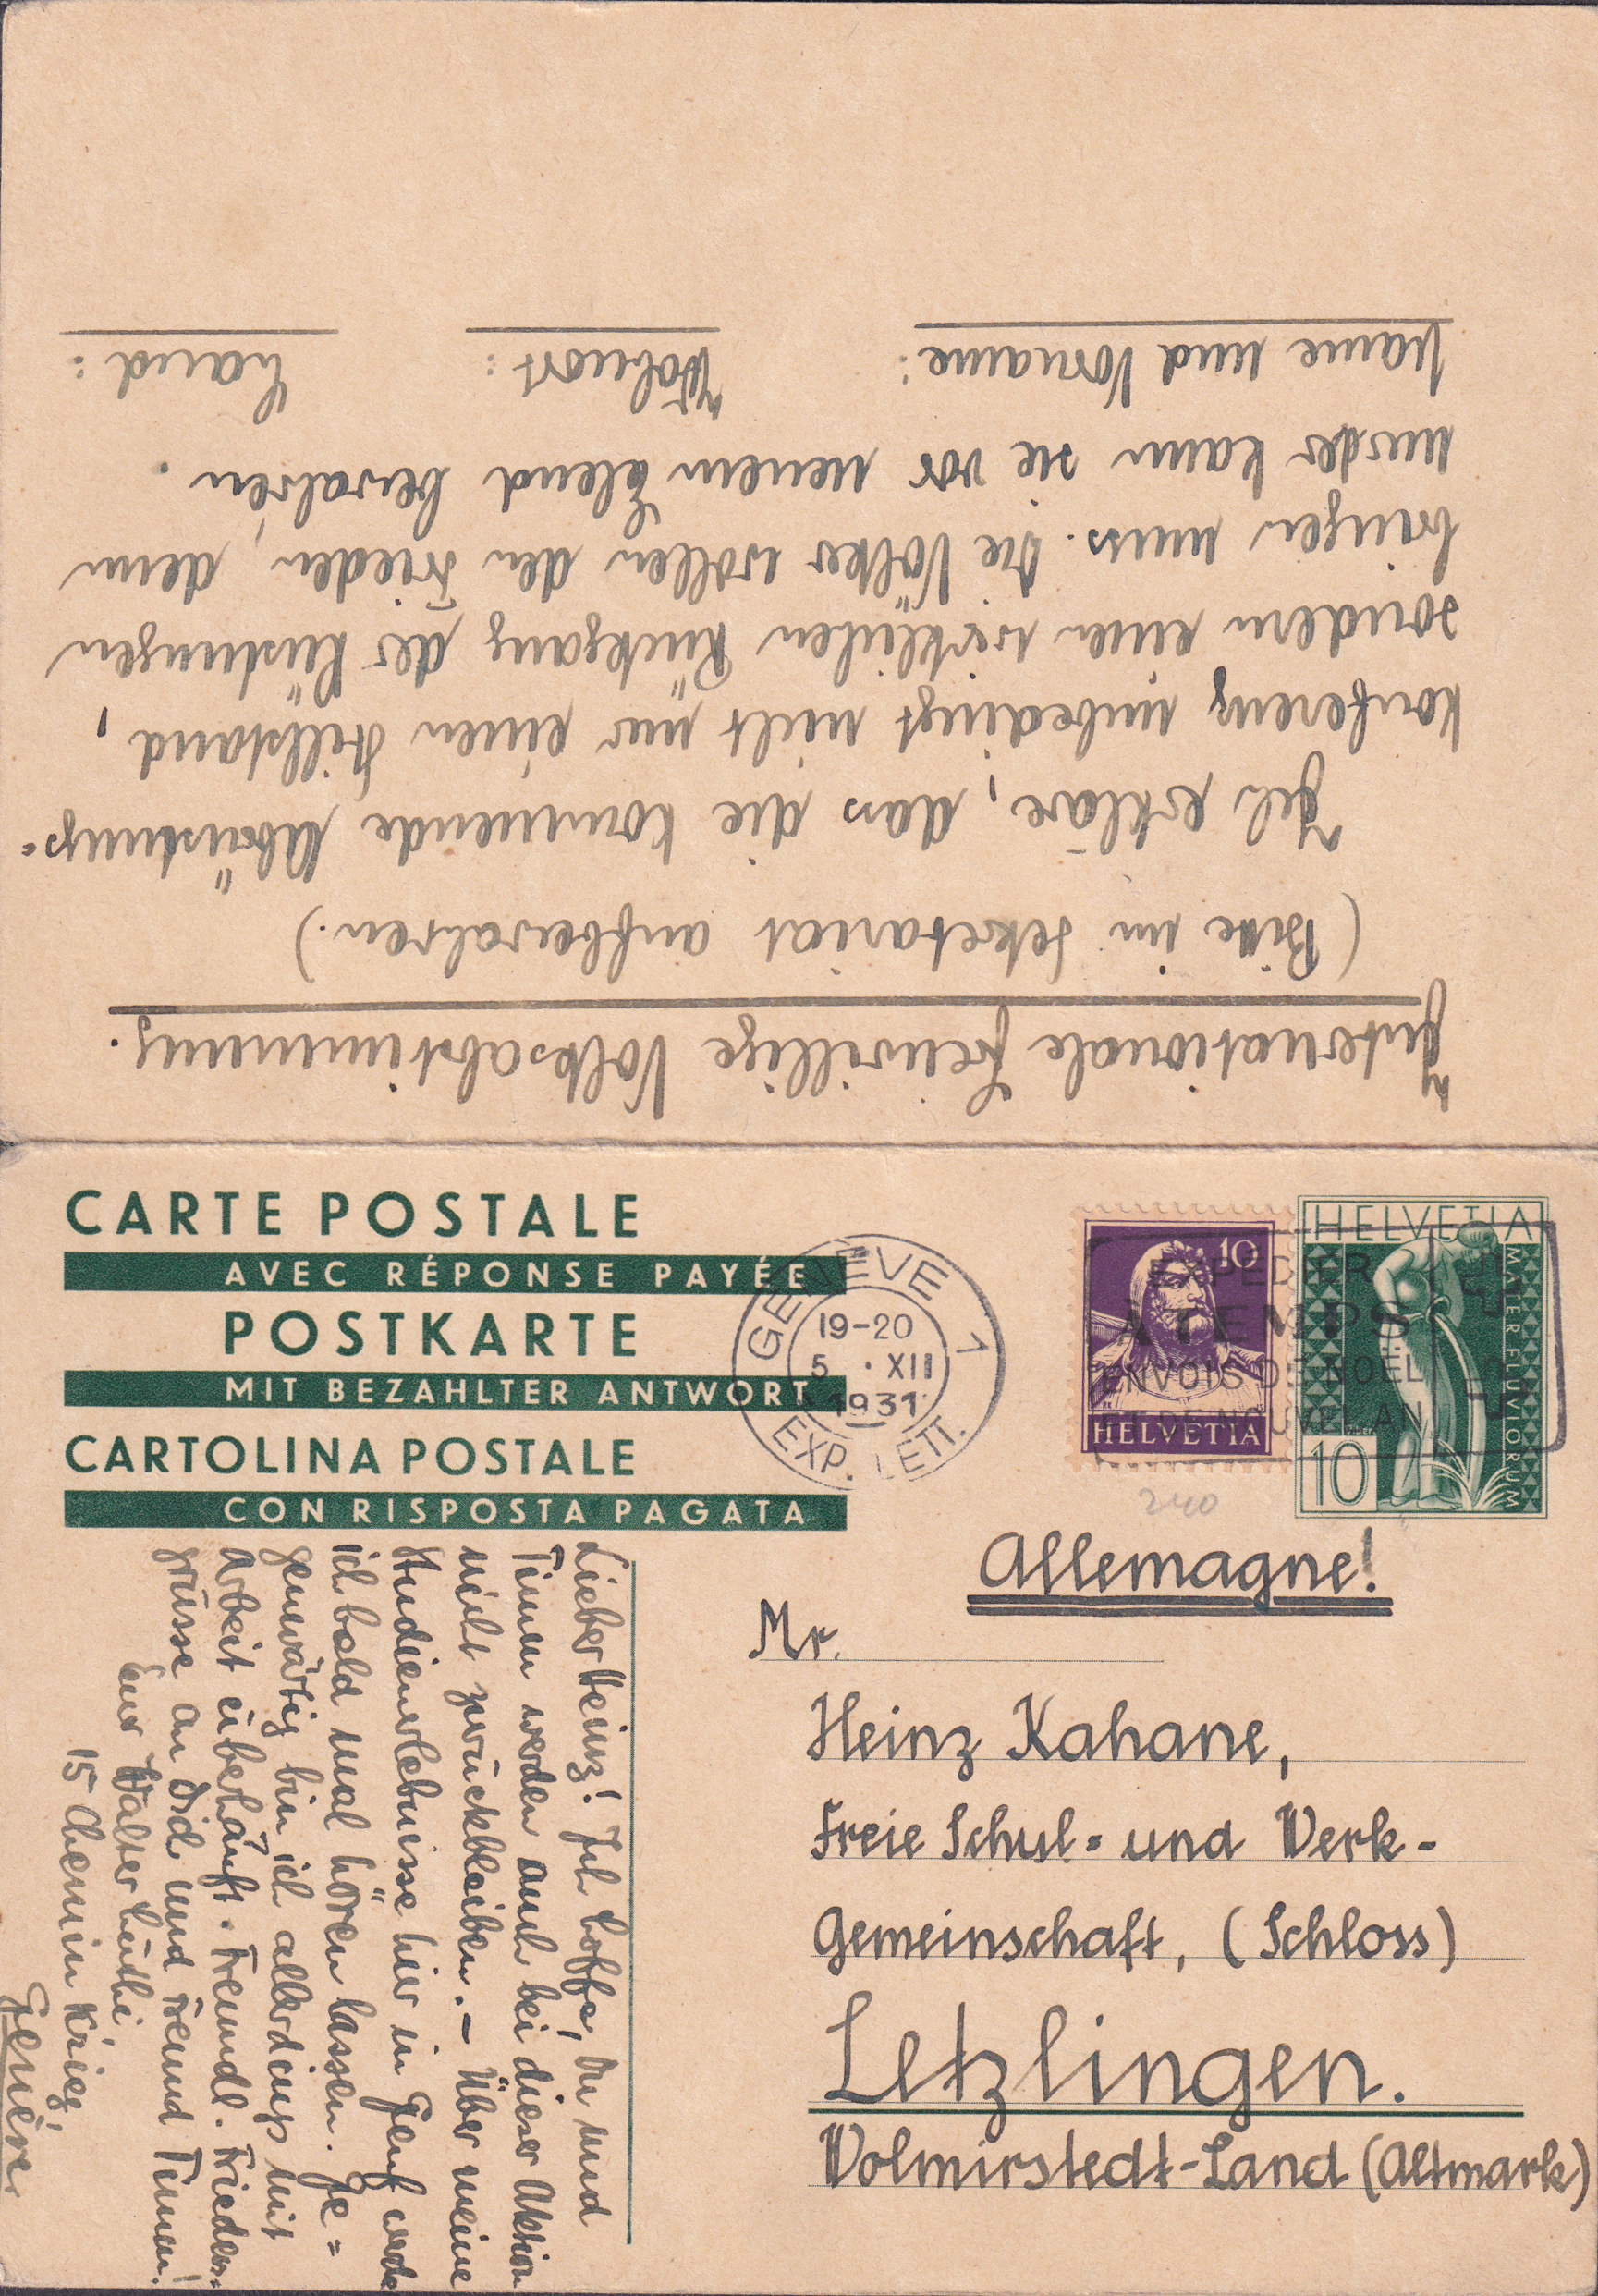 Internationale freiwillige Volksabstimmung.
(Bitte im Sekretariat aufbewahren.)
Ich erkläre, dass die kommende Abrüstungs=
konferenz unbedingt nicht nur einen Stillstand,
sondern einen wirklichen Rückgang der Rüstungen
bringen muss. Die Völker wollen den Frieden, denn
nur der kann sie vor neuem Elend bewahren.
Name und Vorname: Wohnort: Land:
CARTE POSTALE
AVEC RÉPONSE PAYÉE
POSTKARTE
MIT BEZAHLTER ANTWORT
CARTOLINA POSTALE
CON RISPOSTA PAGATA
GENÈVE 1
19-20
5 · XII
1931
EXP. LETT.
10
HELVETIA
HELVETIA
MATER FLUVIORUM
10
EXPEDIER
A TEMPS
ENVOIS DE NOËL
ET DE NOUVEL AN
240
Allemagne!
Mr.
Heinz Kahane,
Freie Schul= und Werk-
Gemeinschaft, (Schloss)
Letzlingen.
Wolmirstedt-Land (Altmark)
Lieber Heinz! Ich hoffe, Du und
Timm werden auch bei dieser Aktion
nicht zurückbleiben. - Über meine
Studienerlebnisse hier in Genf werde
ich bald mal hören lassen. Ge=
genwärtig bin ich allerdings mit
Arbeit überhäuft. Freundl. Friedens=
grüsse an Dich und Freund Timm!
Euer Walter Lüthi,
15 Chemin Krieg,
Genève.